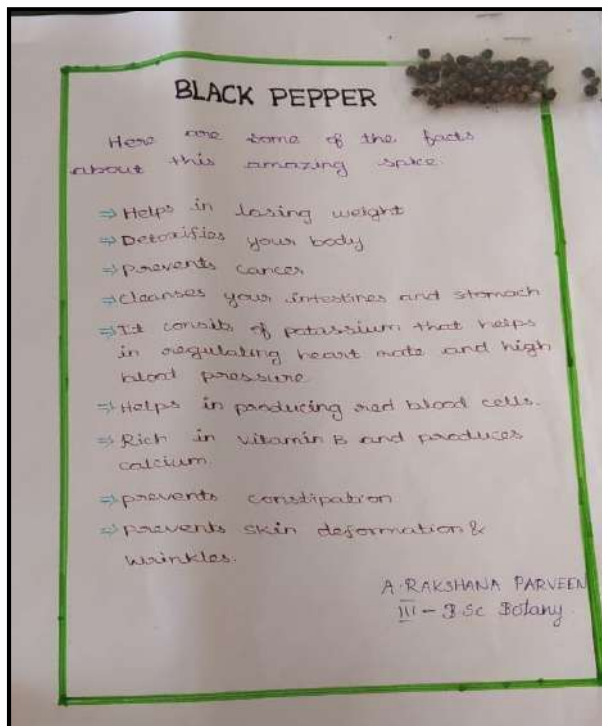 BLACK PEPPER
Here are some of the facts
about this amazing spice.
⇒ Helps in losing weight
⇒ Detoxifies your body
⇒ prevents cancer
⇒ cleanses your intestines and stomach
⇒ It consits of potassium that helps
in regulating heart rate and high
blood pressure
⇒ Helps in producing red blood cells.
⇒ Rich in vitamin B and produces
calcium.
⇒ prevents constipation
⇒ prevents skin deformation &
wrinkles.
A. RAKSHANA PARVEEN
III - B.Sc Botany